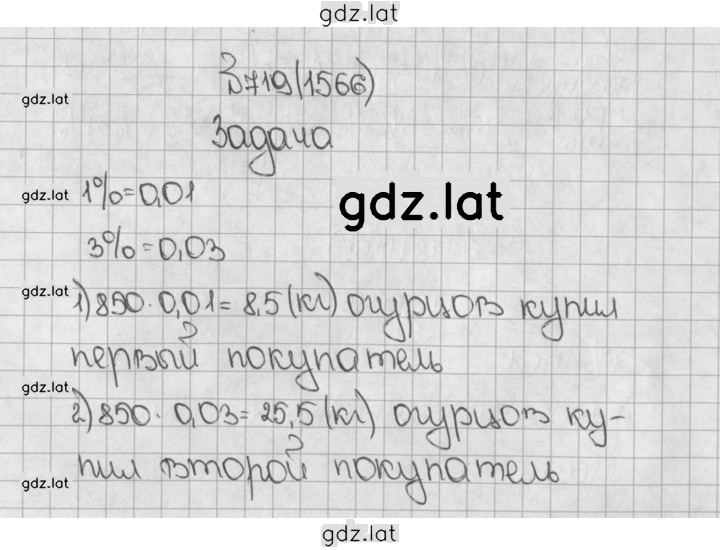 gdz.lat
З719(1566)
gdz.lat
Задача
gdz.lat
1%=0,01
gdz.lat
3%=0,03
gdz.lat
1) 850·0,01=8,5(кг) огурцов купил
первый покупатель
gdz.lat
2) 850·0,03=25,5(кг) огурцов ку-
пил второй покупатель
gdz.lat
gdz.lat